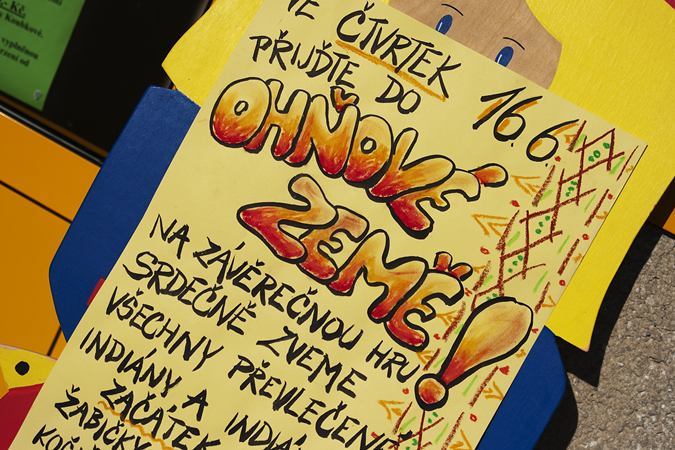 VE ČTVRTEK 16.6.
PŘIJĎTE DO
OHŇOVÉ
ZEMĚ!
NA ZÁVĚREČNOU HRU
SRDEČNĚ ZVEME
VŠECHNY PŘEVLEČENÉ
INDIÁNY A
ZAČÁTEK
ŽABIČKY
Kč
Koubkové.
vyplněnou
od